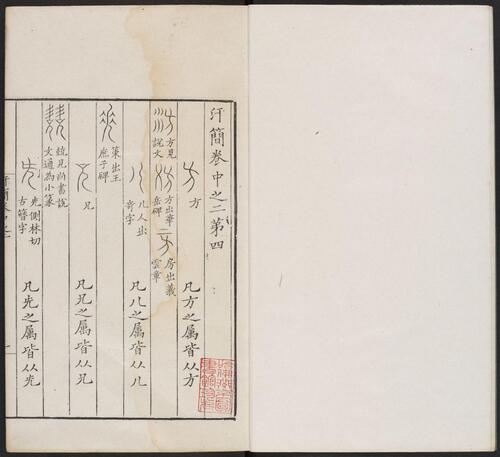 汗簡卷中之二第四
方 凡方之屬皆从方
方見說文 方出華岳碑 房出義雲章
儿人出奇字 凡儿之屬皆从儿
策出王庶子碑
兄 凡兄之屬皆从兄
兢見尚書說文通為小篆
先側林切古簪字 凡先之屬皆从先